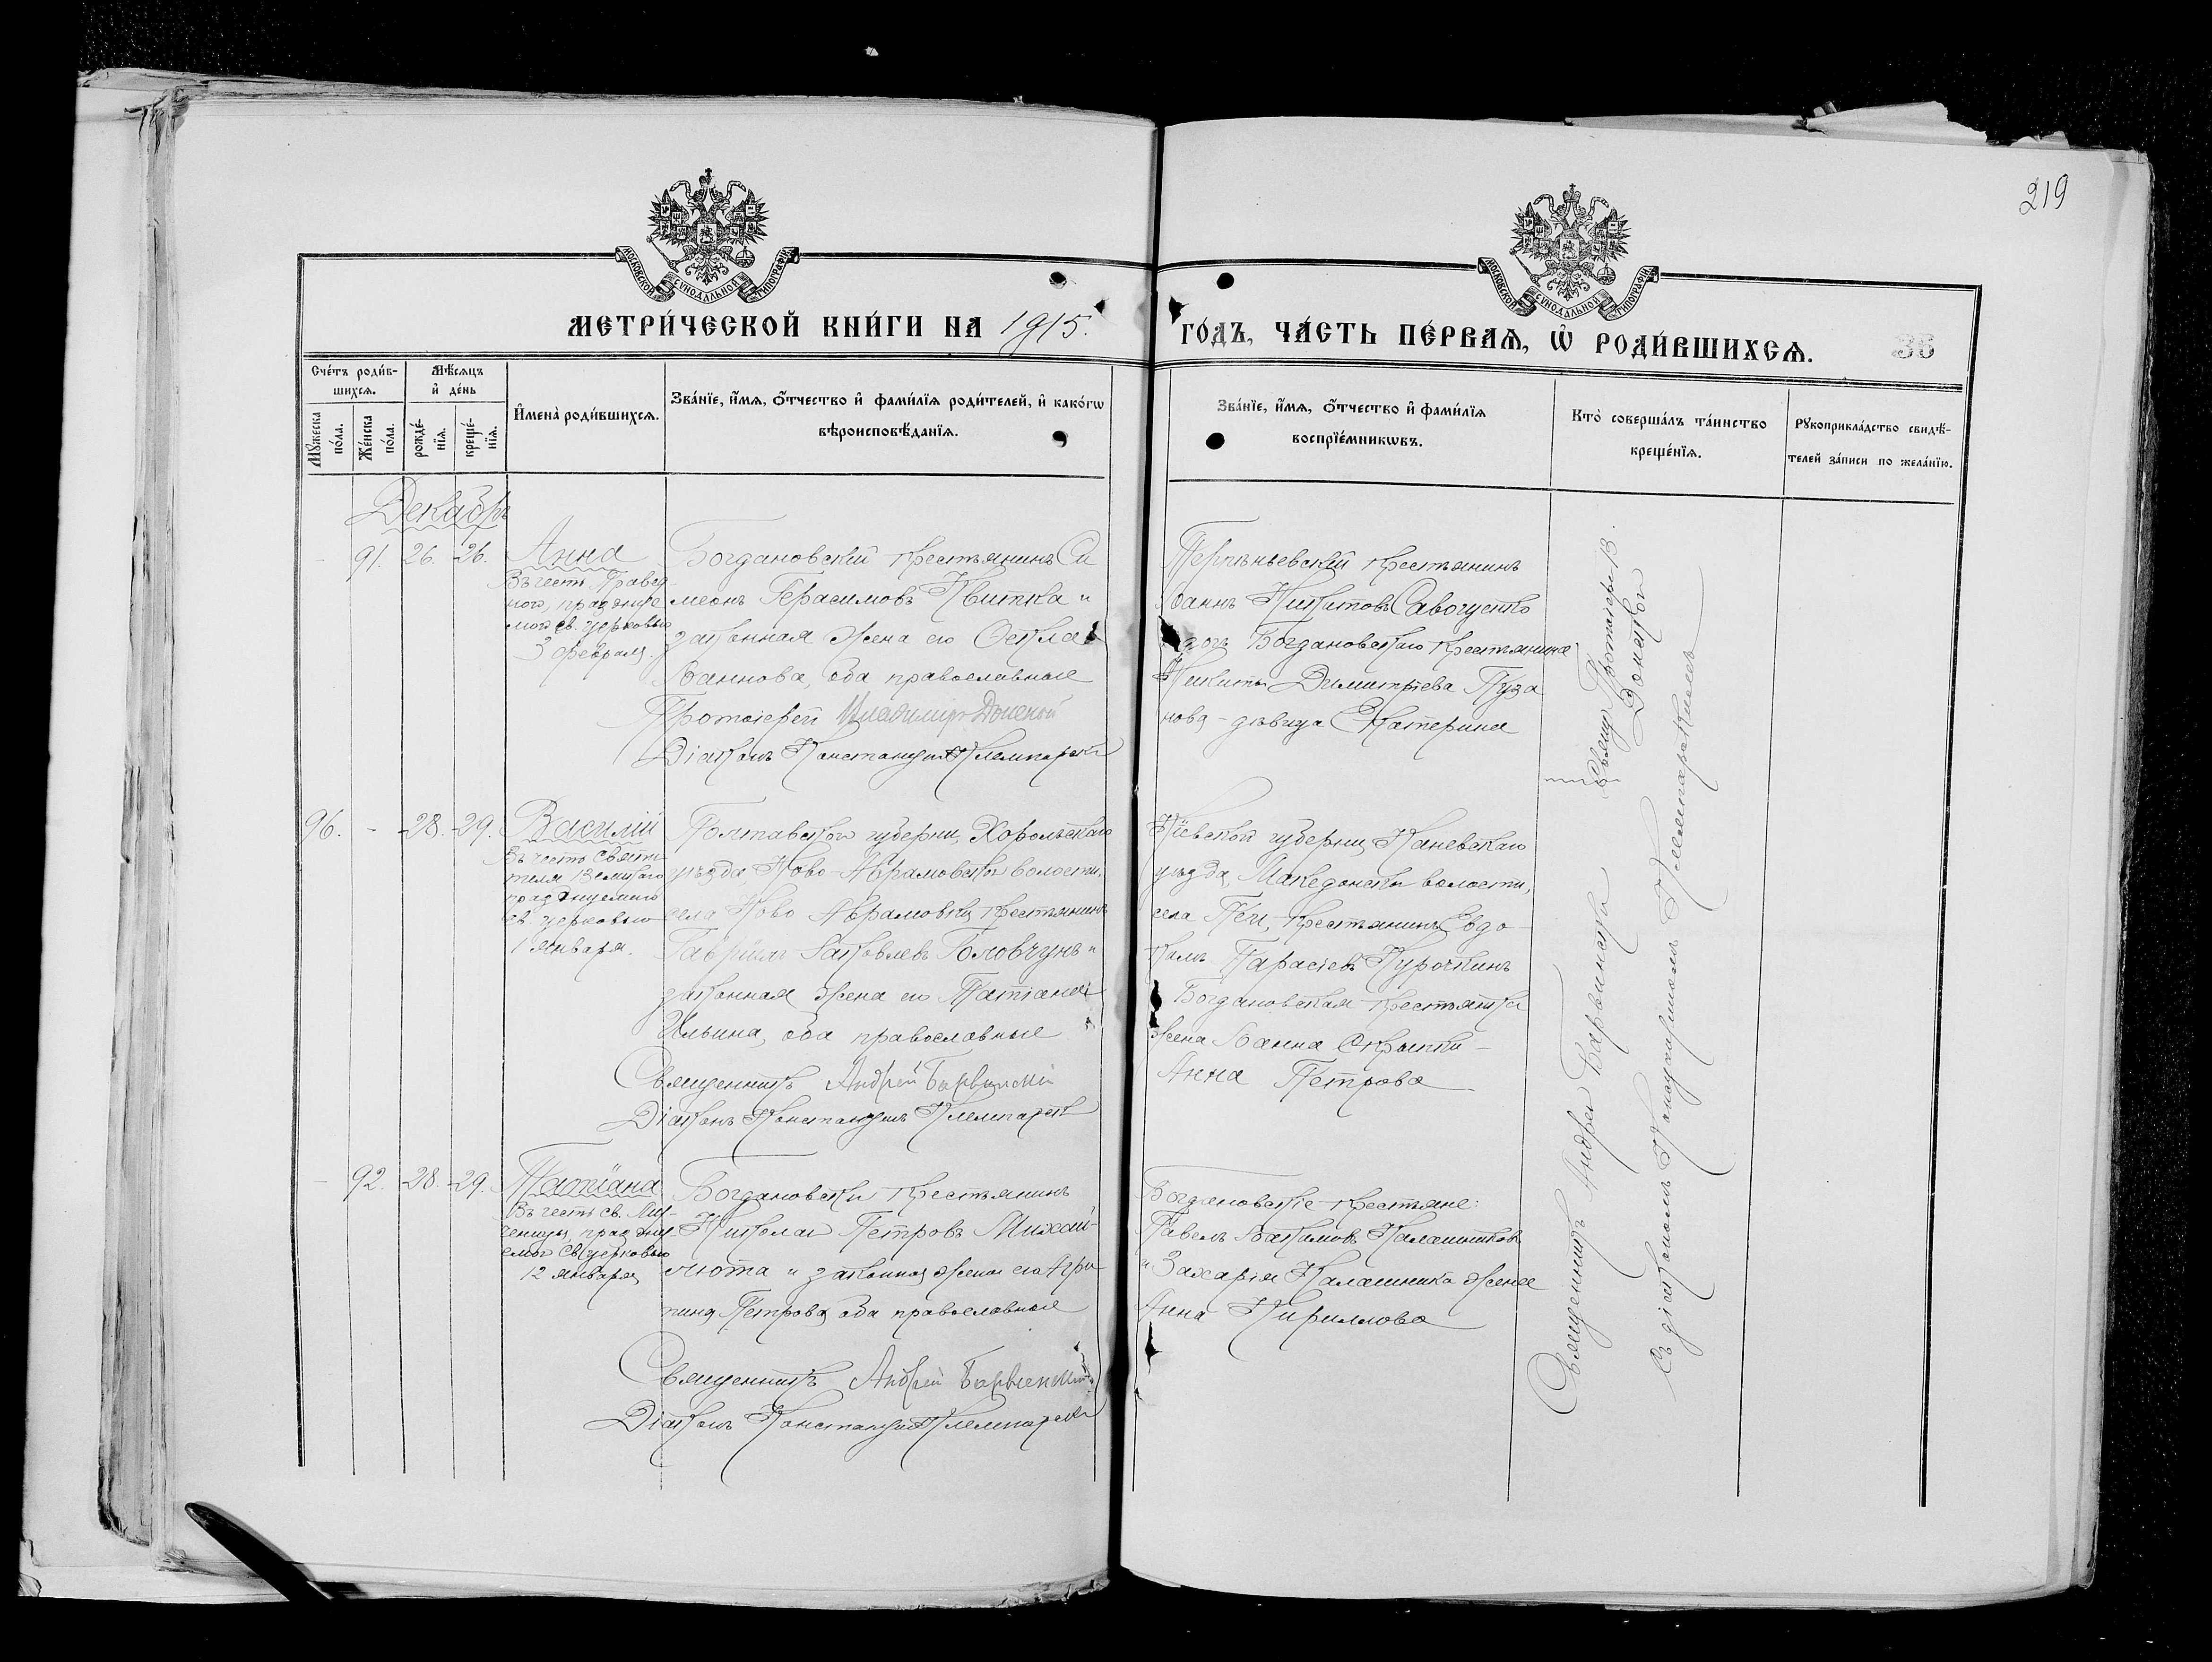 219
МОСКОВСКОЙ СѴНОДАЛЬНОЙ ТИПОГРАФІИ
МОСКОВСКОЙ СѴНОДАЛЬНОЙ ТИПОГРАФІИ
МЕТРИ́ЧЕСКОЙ КНИ́ГИ НА 1915. ГО́ДЪ, ЧА́СТЬ ПЕ́РВАѦ, Ѡ҆ РОДИ́ВШИХСѦ. 36
Сче́тъ роди́в-
шихсѧ.
Мꙋжеска по́ла.
Же́нска по́ла.
Мѣ́сѧцъ
и҆ де́нь
рожде́-
нїѧ.
креще́-
нїѧ.
И҆мена̀ роди́вшихсѧ.
Зва́нїе, и҆́мѧ, ѻ҆́тчество и҆ фами́лїѧ роди́телей, и҆ како́гѡ
вѣроисповѣ́данїѧ.
Зва́нїе, и҆́мѧ, ѻ҆́тчество и҆ фами́лїѧ
воспрїе́мникѡвъ.
Кто̀ соверша́лъ та́инство
креще́нїѧ.
Рꙋкоприкла́дство свидѣ́-
телей за́писи по жела́нїю.
Декабрь
- 91. 26. 26. Анна
Въ честь Правед-
ной, празднуе
мой св. церковью
3 февраля.
Богдановскій крестьянинъ Си
меонъ Герасимовъ Квитка и
законная жена его Оекла
Іоаннова, оба православные
Протоіерей Владимиръ Донской
Діаконъ Константинъ Клемпарскій
Іоаннъ Никитовъ Савочценко
Богдановскаго крестьянина
Никиты Димитріева Пуза
нова - дѣвица Екатерина
Свящ. Протоіерей В.
Донской
96. - 28. 29. Василій
Въ честь Святи-
теля Великаго
празднуемаго
св. церковью
1 января.
Полтавской губерни, Хорольскаго
уѣзда, Ново-Аврамовской волости,
села Ново Аврамовки крестьянинъ
Гавріилъ Іаковлевъ Головчунъ и
законная жена его Татіана
Ильина, оба православные
Священникъ Андрей Барвинскій
Діаконъ Константинъ Клемпарскій
Кіевской губерни, Каневскаго
уѣзда, Македонской волости,
села крестьянинъ Евдо-
кимъ Курочкинъ
Богдановская крестьянка
жена Іоанна Скрыпки -
Анна Петрова
- 92. 28. 29. Татіана
Въ честь св. Му-
ченицы, праздну-
емой св. церковью
12 января
Богдановскій крестьянинъ
Николай Петровъ Михай-
люта и законная жена его Агри
пина Петрова оба православные
Священникъ Андрей Барвинскій
Діаконъ Константинъ Клемпарскій
Богдановскіе крестьяне:
Павелъ Іоакимовъ Калашниковъ
и Захарія Калашника жена
Анна Кириллова
Священникъ Андрей Барвинскій
съ діакономъ Константиномъ Клемпарскимъ